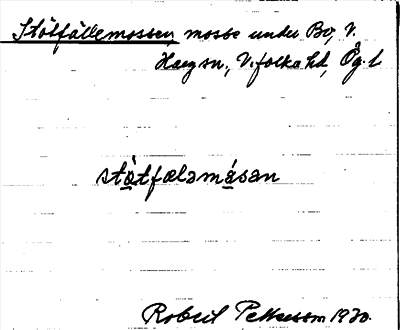 Stötfällemossen mosse under Bo, V.
Harg sn., V. folka hd, Ög. l
stö̀tfælamásan
Robert Pettersson 1930.